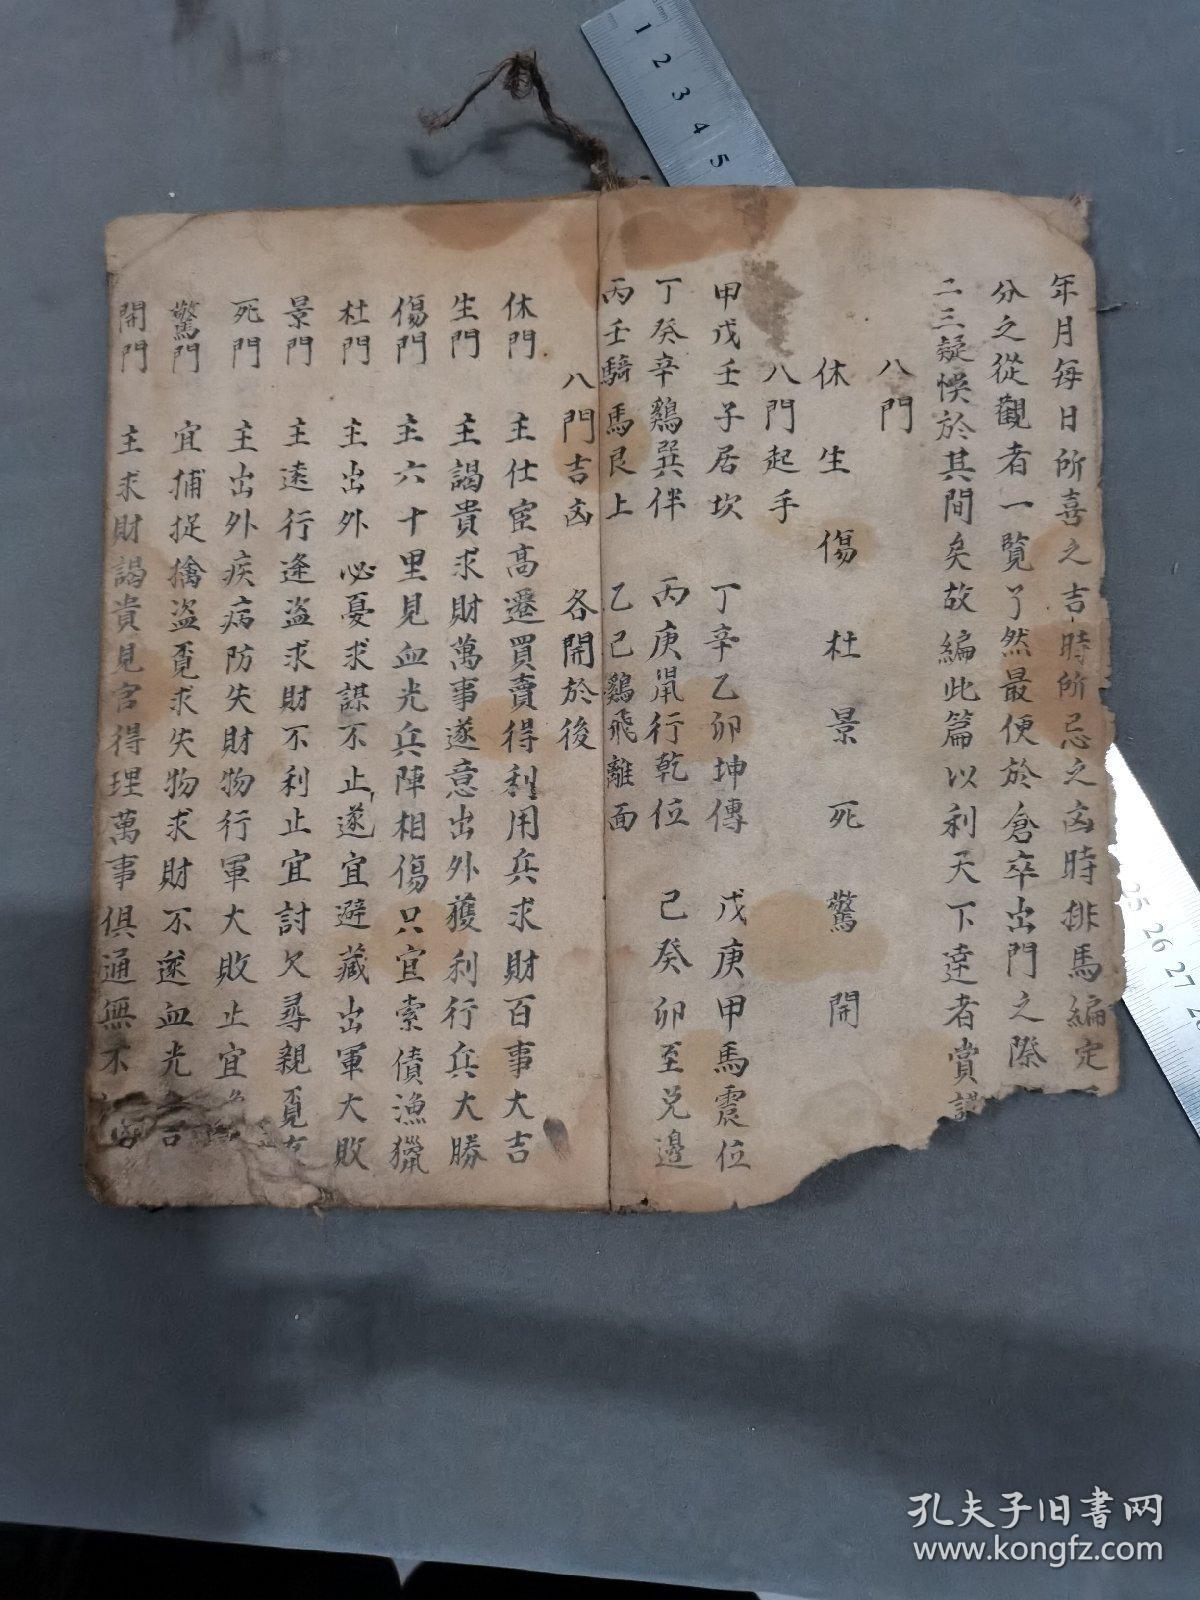 年月每日所喜之吉時所忌之凶時排馬編定
分之從觀者一覧了然最便於倉卒出門之際
二三疑悞於其間矣故編此篇以利天下達者賞
八門
休 生 傷 杜 景 死 驚 開
八門起手
甲戊壬子居坎 丁辛乙卯坤傳 戊庚甲馬震位
丁癸辛鷄巽伴 丙庚鼠行乾位 己癸卯至兌邊
丙壬騎馬艮上 乙己鷄飛離面
八門吉凶 各開於後
休門 主仕宦高遷買賣得利用兵求財百事大吉
生門 主謁貴求財萬事遂意出外獲利行兵大勝
傷門 主六十里見血光兵陣相傷只宜索債漁獵
杜門 主出外必憂求謀不止遂宜避藏出軍大敗
景門 主遠行逢盗求財不利止宜討欠尋親覓
死門 主出外疾病防失財物行軍大敗止宜
驚門 宜捕捉擒盗覓求失物求財不遂血光 吉
開門 主求財謁貴見官得理萬事俱通無不
1 2 3 4 5
25 26 27
孔夫子旧书网
www.kongfz.com